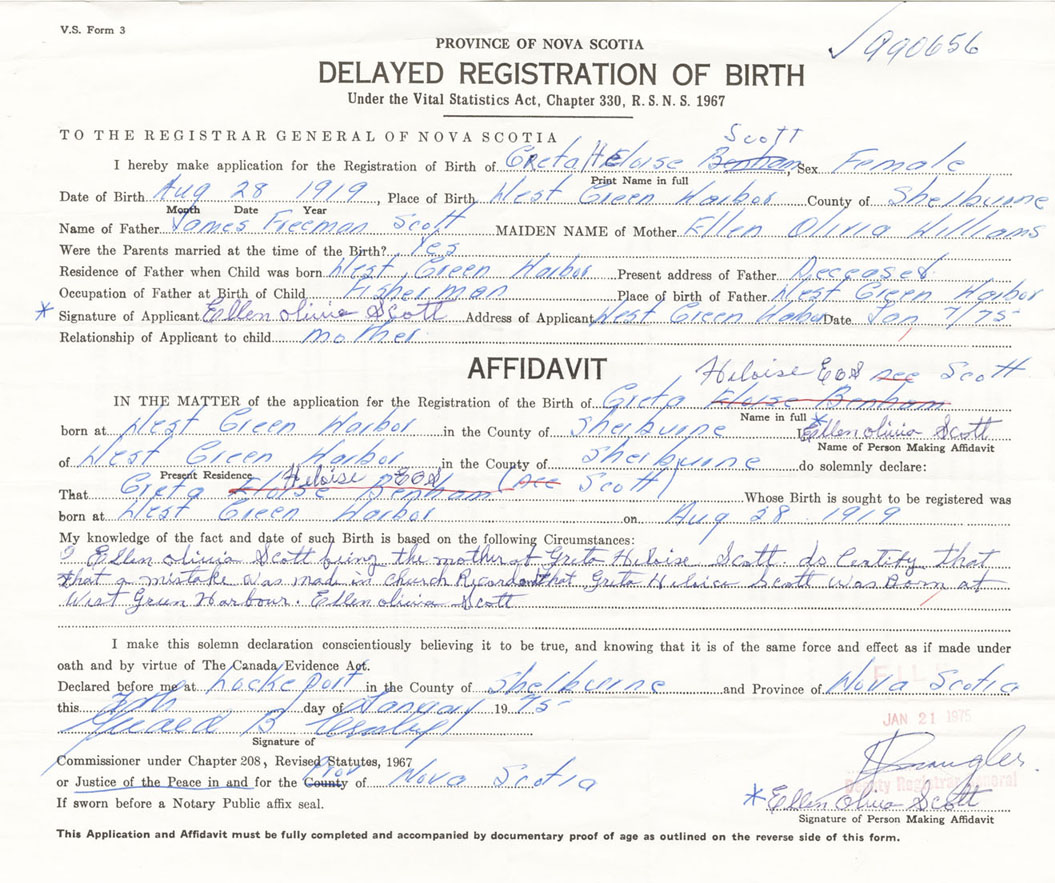 V.S. Form 3
990656
PROVINCE OF NOVA SCOTIA
DELAYED REGISTRATION OF BIRTH
Under the Vital Statistics Act, Chapter 330, R. S. N. S. 1967
TO THE REGISTRAR GENERAL OF NOVA SCOTIA
Scott
I hereby make application for the Registration of Birth of Greta H Eloise Benham, Sex Female
Print Name in full
Date of Birth Aug 28 1919, Place of Birth West Green Harbor County of Shelburne
Month Date Year
Name of Father James Freeman Scott MAIDEN NAME of Mother Ellen Olivia Williams
Were the Parents married at the time of the Birth? Yes
Residence of Father when Child was born West Green Harbor Present address of Father Deceased
Occupation of Father at Birth of Child Fisherman Place of birth of Father West Green Harbor
* Signature of Applicant Ellen olivia Scott Address of Applicant West Green Habor Date Jan 7/75
Relationship of Applicant to child mother
AFFIDAVIT
Heloise EOS nee Scott
IN THE MATTER of the application for the Registration of the Birth of Greta Eloise Benham
Name in full
born at West Green Harbor in the County of Sherburne I, * Ellen olivia Scott
Name of Person Making Affidavit
of West Green Harbor in the County of Sherburne do solemnly declare:
Present Residence Heloise EOS
That Greta Eloise Benham (nee Scott) Whose Birth is sought to be registered was
born at West Green Harbor on Aug 28 1919
My knowledge of the fact and date of such Birth is based on the following Circumstances:
I Ellen olivia Scott being the mother of Greta Heloise Scott do Certify that
that a mistake was made in Church Record and that Greta Heloise Scott was Born at
West Green Harbour. Ellen olivia Scott
I make this solemn declaration conscientiously believing it to be true, and knowing that it is of the same force and effect as if made under
oath and by virtue of The Canada Evidence Act.
Declared before me at Lockeport in the County of Shelburne and Province of Nova Scotia
this 7th day of January 1975
FILED
JAN 21 1975
B
Signature of
Commissioner under Chapter 208, Revised Statutes, 1967
Prov
or Justice of the Peace in and for the County of Nova Scotia
Deputy Registrar General
If sworn before a Notary Public affix seal.
* Ellen Olivia Scott
Signature of Person Making Affidavit
This Application and Affidavit must be fully completed and accompanied by documentary proof of age as outlined on the reverse side of this form.